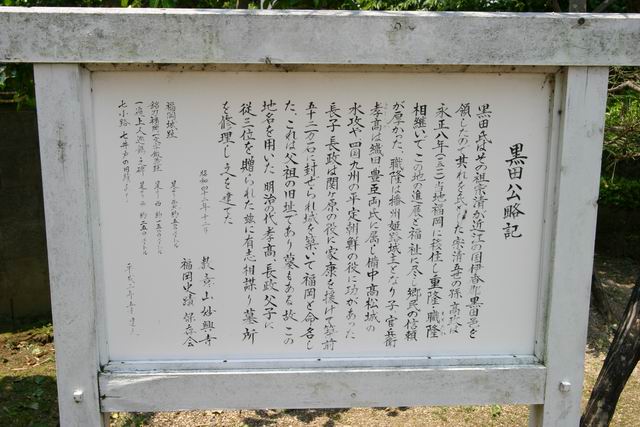 黒田公略記
黒田氏はその祖宗清が近江の国伊香郡黒田邑を
領したので其れを氏とした宗清五世の孫高政は
永正八年(一五一一)当地福岡に移住し重隆、職隆
相継いでこの地の進展と福祉に尽し郷民の信頼
が厚かった、職隆は播州姫路城主となり子官兵衛
孝高は織田豊臣両氏に属し備中高松城の
水攻や四国九州の平定朝鮮の役に功があった
長子長政は関ヶ原の役に家康を援けて筑前
五十二万石に封ぜられ城を築いて福岡と命名し
た、これは父祖の旧址であり墓もある故この
地名を用いた 明治の代孝高、長政父子に
従三位を贈られた 茲に有志相謀り墓所
を修理し之を建てた
昭和四十三年十二月
教意山妙興寺
福岡史蹟保存会
福岡城趾
一遍上人
七小路 七井戸の